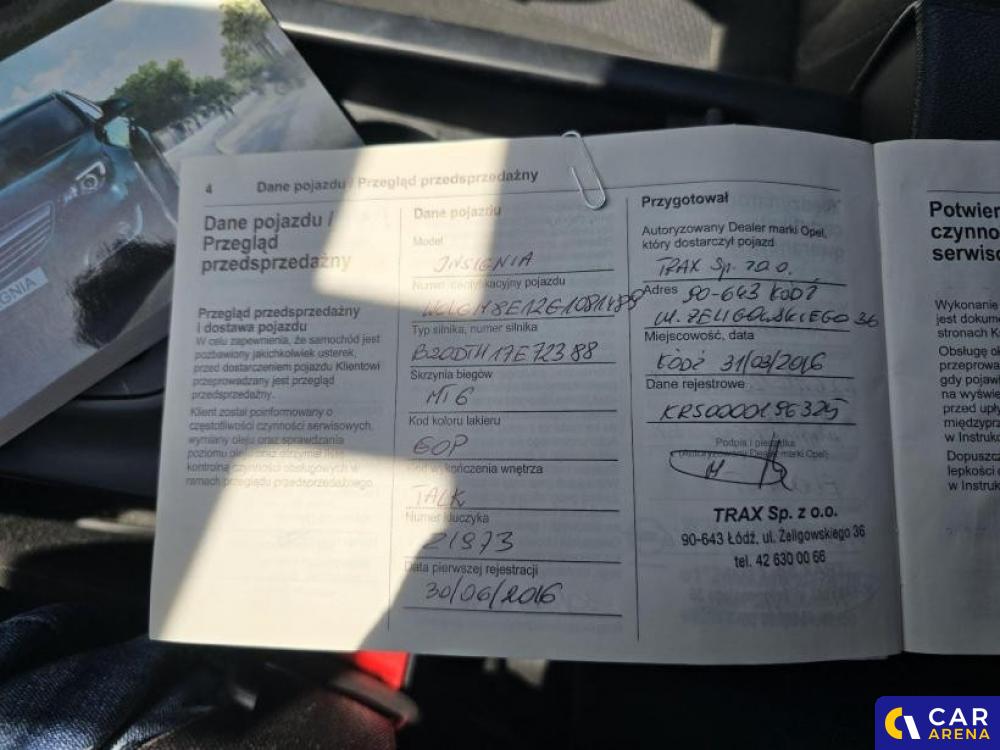 4 Dane pojazdu / Przegląd przedsprzedażny
Dane pojazdu /
Przegląd
przedsprzedażny
Przegląd przedsprzedażny
i dostawa pojazdu
W celu zapewnienia, że samochód jest
pozbawiony jakichkolwiek usterek,
przed dostarczeniem pojazdu Klientowi
przeprowadzany jest przegląd
przedsprzedażny.
Klient został poinformowany o
częstotliwości czynności serwisowych,
wymiany oleju oraz sprawdzania
poziomu oleju oraz otrzymał listę
kontrolną czynności obsługowych w
ramach przeglądu przedsprzedażnego.
Dane pojazdu
Model
INSIGNIA
Numer identyfikacyjny pojazdu
Typ silnika, numer silnika
B20DTH 17E72388
Skrzynia biegów
MT6
Kod koloru lakieru
GOP
Kod wykończenia wnętrza
TALK
Numer kluczyka
21973
Data pierwszej rejestracji
30/06/2016
Przygotował
Autoryzowany Dealer marki Opel,
który dostarczył pojazd
TRAX Sp. z o.o.
Adres 90-643 ŁÓDŹ
ul. ŻELIGOWSKIEGO 36
Miejscowość, data
ŁÓDŹ 31/03/2016
Dane rejestrowe
KRS0000156325
Podpis i pieczątka
(Autoryzowany Dealer marki Opel)
TRAX Sp. z o.o.
90-643 Łódź, ul. Żeligowskiego 36
tel. 42 630 00 66
Potwier
czynno
serwiso
Wykonanie
jest dokume
stronach K
Obsługę ok
przeprowa
gdy pojawi
na wyświe
przed upły
międzyprz
w Instruk
Dopuszcz
lepkości o
w Instruk
CAR
ARENA